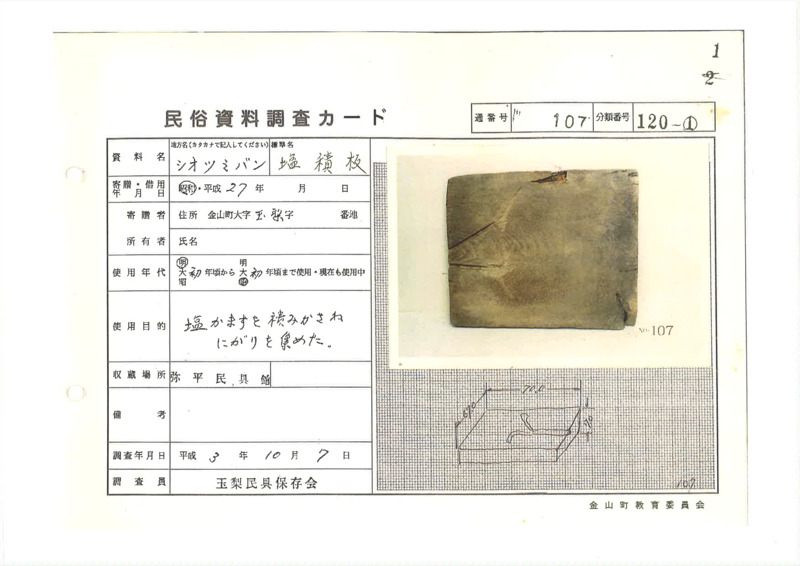 1
2
民俗資料調査カード
通番号 107 分類番号 120-①
資料名 地方名(カタカナで記入してください) シオツミバン 標準名 塩積板
寄贈・借用年月日 昭和・平成 27年 月 日
寄贈者 住所 金山町大字玉梨字 番地
所有者 氏名
使用年代 明大昭 初年頃から 明大昭 初年頃まで使用・現在も使用中
使用目的 塩かますを積みかさね
にがりを集めた。
収蔵場所 弥平民具館
備考
調査年月日 平成 3年 10月 7日
調査員 玉梨民具保存会
No. 107
70.0
107
金山町教育委員会